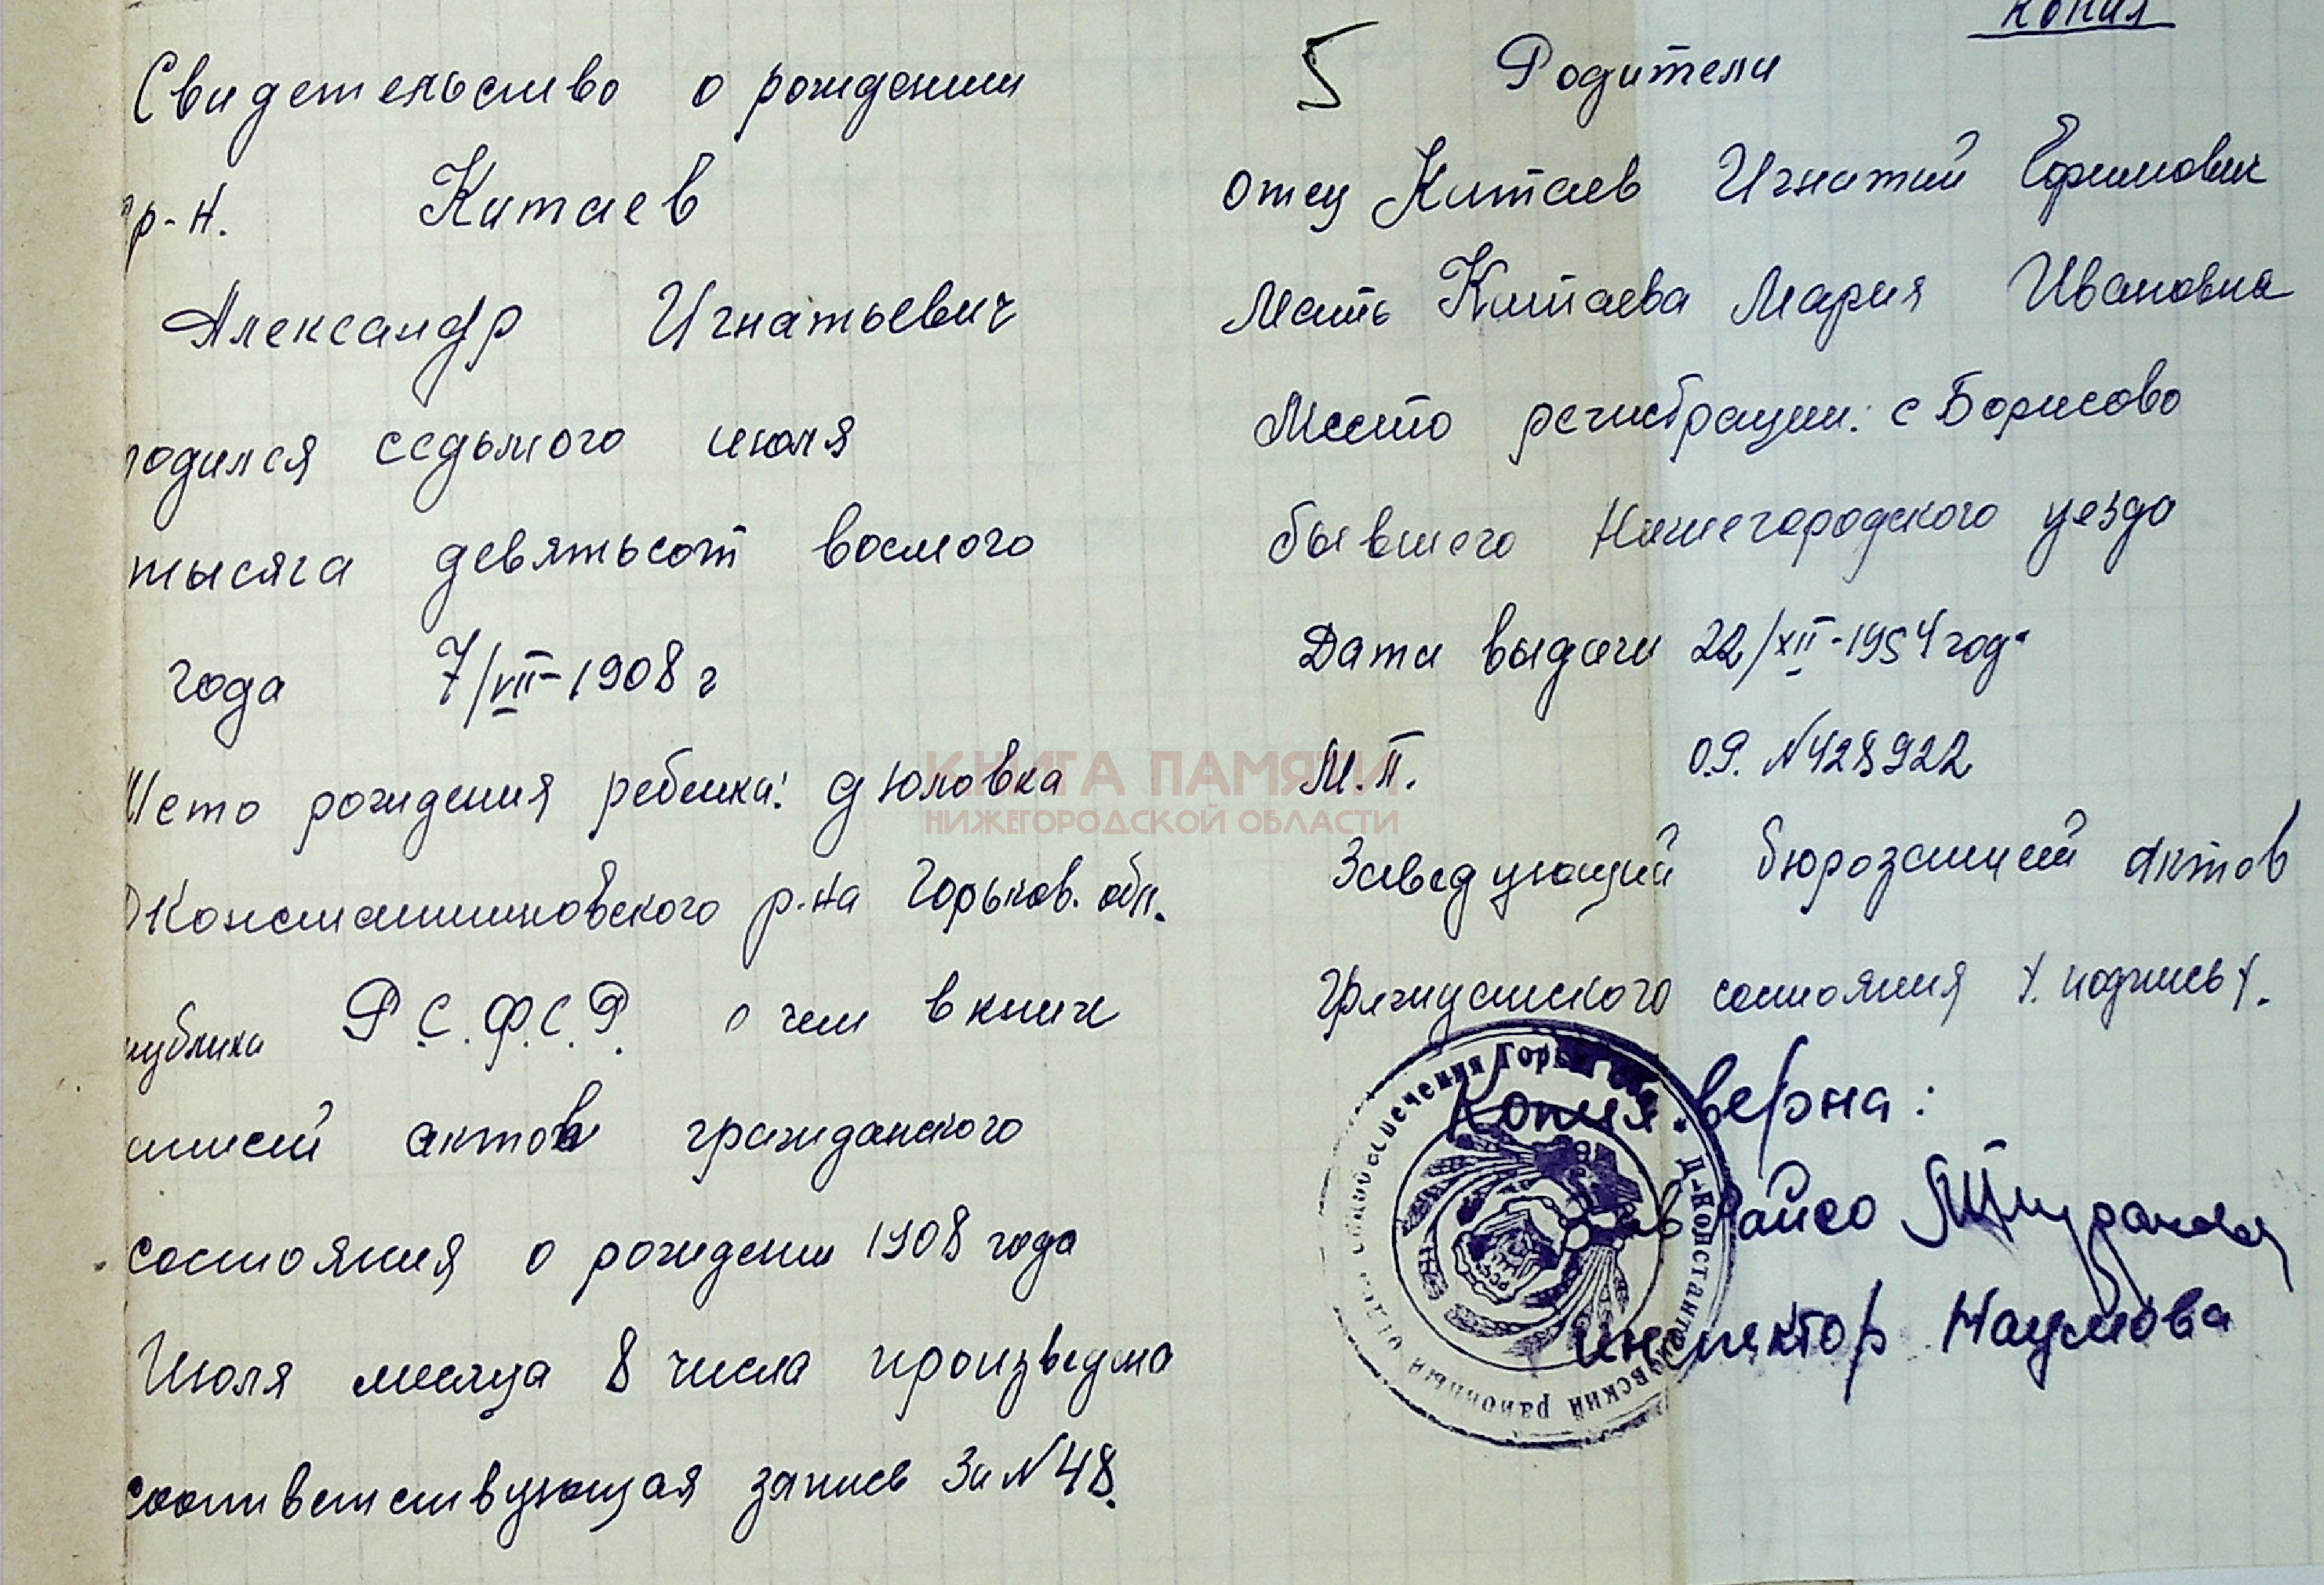 копия
Свидетельство о рождении
гр-н. Китаев
Александр Игнатьевич
родился седьмого июля
тысяча девятьсот восмого
года 7/VII-1908 г
Место рождения ребенка: д Юловка
Константиновского р-на Горьков. обл.
публика Р.С.Ф.С.Р. о чем в книге
записей актов гражданского
состояния о рождении 1908 года
Июля месяца 8 числа произведена
соответствующая запись За №48.
5 Родители
отец Китаев Игнатий Ефимович
Мать Китаева Мария Ивановна
Место регистрации: с Борисово
бывшего Нижегородского уезда
Дата выдачи 22/XII-1954 год.
М.П. О.Р. №428922
Заведующий бюрозаписей актов
Гражданского состояния /.подпись/.
Копия верна:
Зав Райсо
инспектор Наумова
Д-Константиновский районный отдел социального обеспечения Горьк
КНИГА ПАМЯТИ
НИЖЕГОРОДСКОЙ ОБЛАСТИ